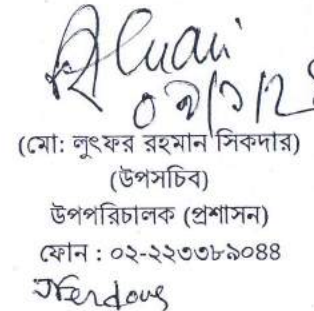 (মো: লুৎফর রহমান সিকদার)
(উপসচিব)
উপপরিচালক (প্রশাসন)
ফোন : ০২-২২৩৩৮৯০৪৪